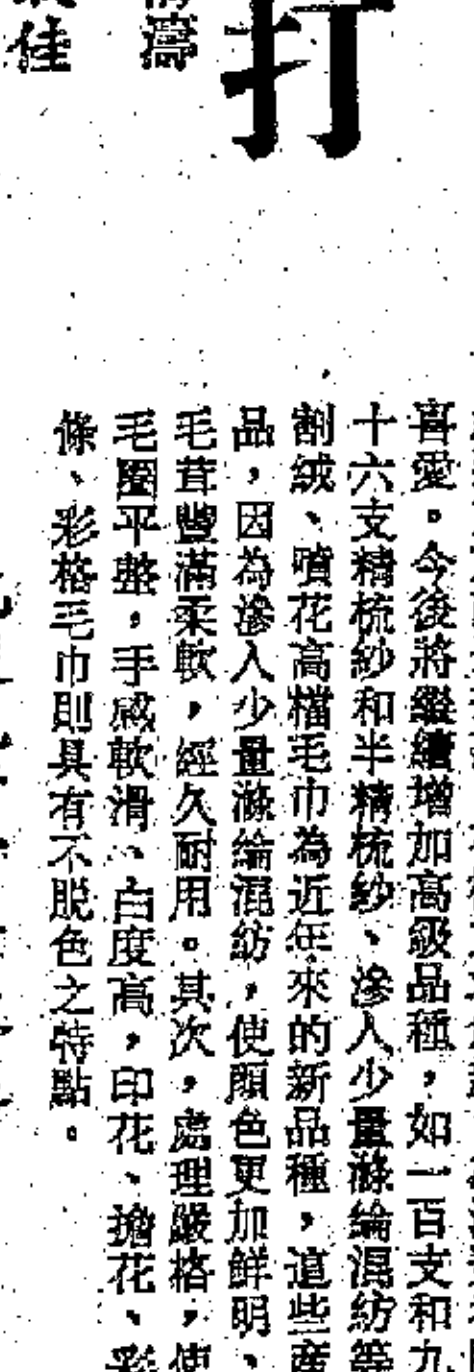 打
濤
佳
喜愛。今後將繼續增加高級品種，如一百支和九
十六支精梳紗和半精梳紗、滲入少量滌綸混紡等
割絨、噴花高檔毛巾為近年來的新品種，這些產
品，因為滲入少量滌綸混紡，使顏色更加鮮明、
毛茸豐滿柔軟，經久耐用。其次，處理嚴格，使
毛圈平整，手感軟滑、白度高，印花、擔花、彩
條、彩格毛巾則具有不脫色之特點。